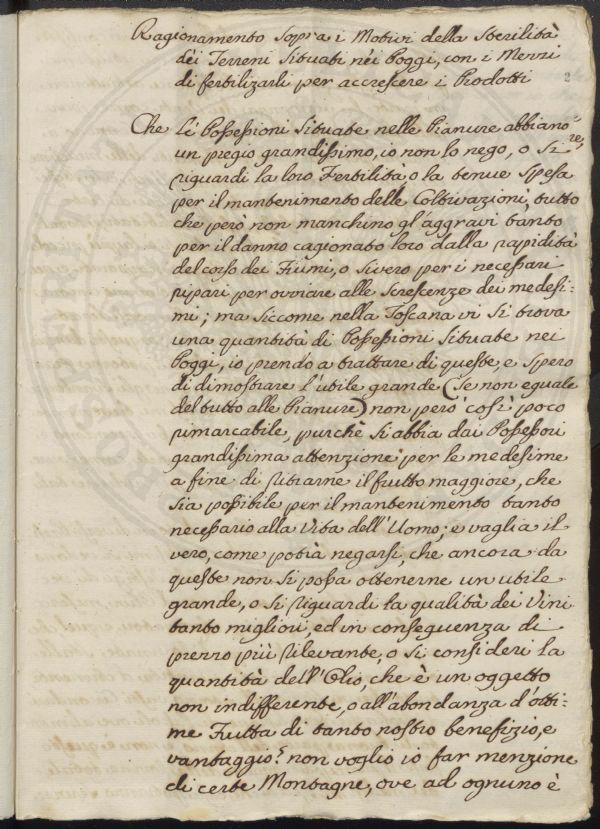 Ragionamento sopra i Motivi della Sterilità
dei Terreni Situati nei Poggi, con i Mezzi
di fertilizarli per accrescere i Prodotti
2
Che le Possessioni Situate nelle Pianure abbiano
un pregio grandissimo, io non lo nego, o si
riguardi la loro Fertilità, o la tenue spesa
per il mantenimento delle Coltivazioni, tutto
che però non manchino gl'aggravi tanto
per il danno cagionato loro dalla rapidità
del corso dei Fiumi, o sivero per i necessari
ripari per ovviare alle screscenze dei medesi:
mi; ma siccome nella Toscana vi si trova
una quantità di Possessioni Situate nei
Poggi, io prendo a trattare di queste, e spero
di dimostrare l'utile grande (se non eguale
del tutto alle Pianure) non però così poco
rimarcabile, purchè si abbia dai Possessori
grandissima attenzione per le medesime
a fine di ritrarne il frutto maggiore, che
sia possibile per il mantenimento tanto
necessario alla Vita dell'Uomo; e vaglia il
vero, come potrà negarsi, che ancora da
queste non si possa ottenerne un utile
grande, o si riguardi la qualità dei Vini
tanto migliori, ed in conseguenza di
prezzo più rilevante, o si consideri la
quantità dell'Olio, che è un oggetto
non indifferente, o all'abondanza d'otti:
me Frutta di tanto nostro benefizio, e
vantaggio? non voglio io far menzione
di certe Montagne, ove ad ognuno è